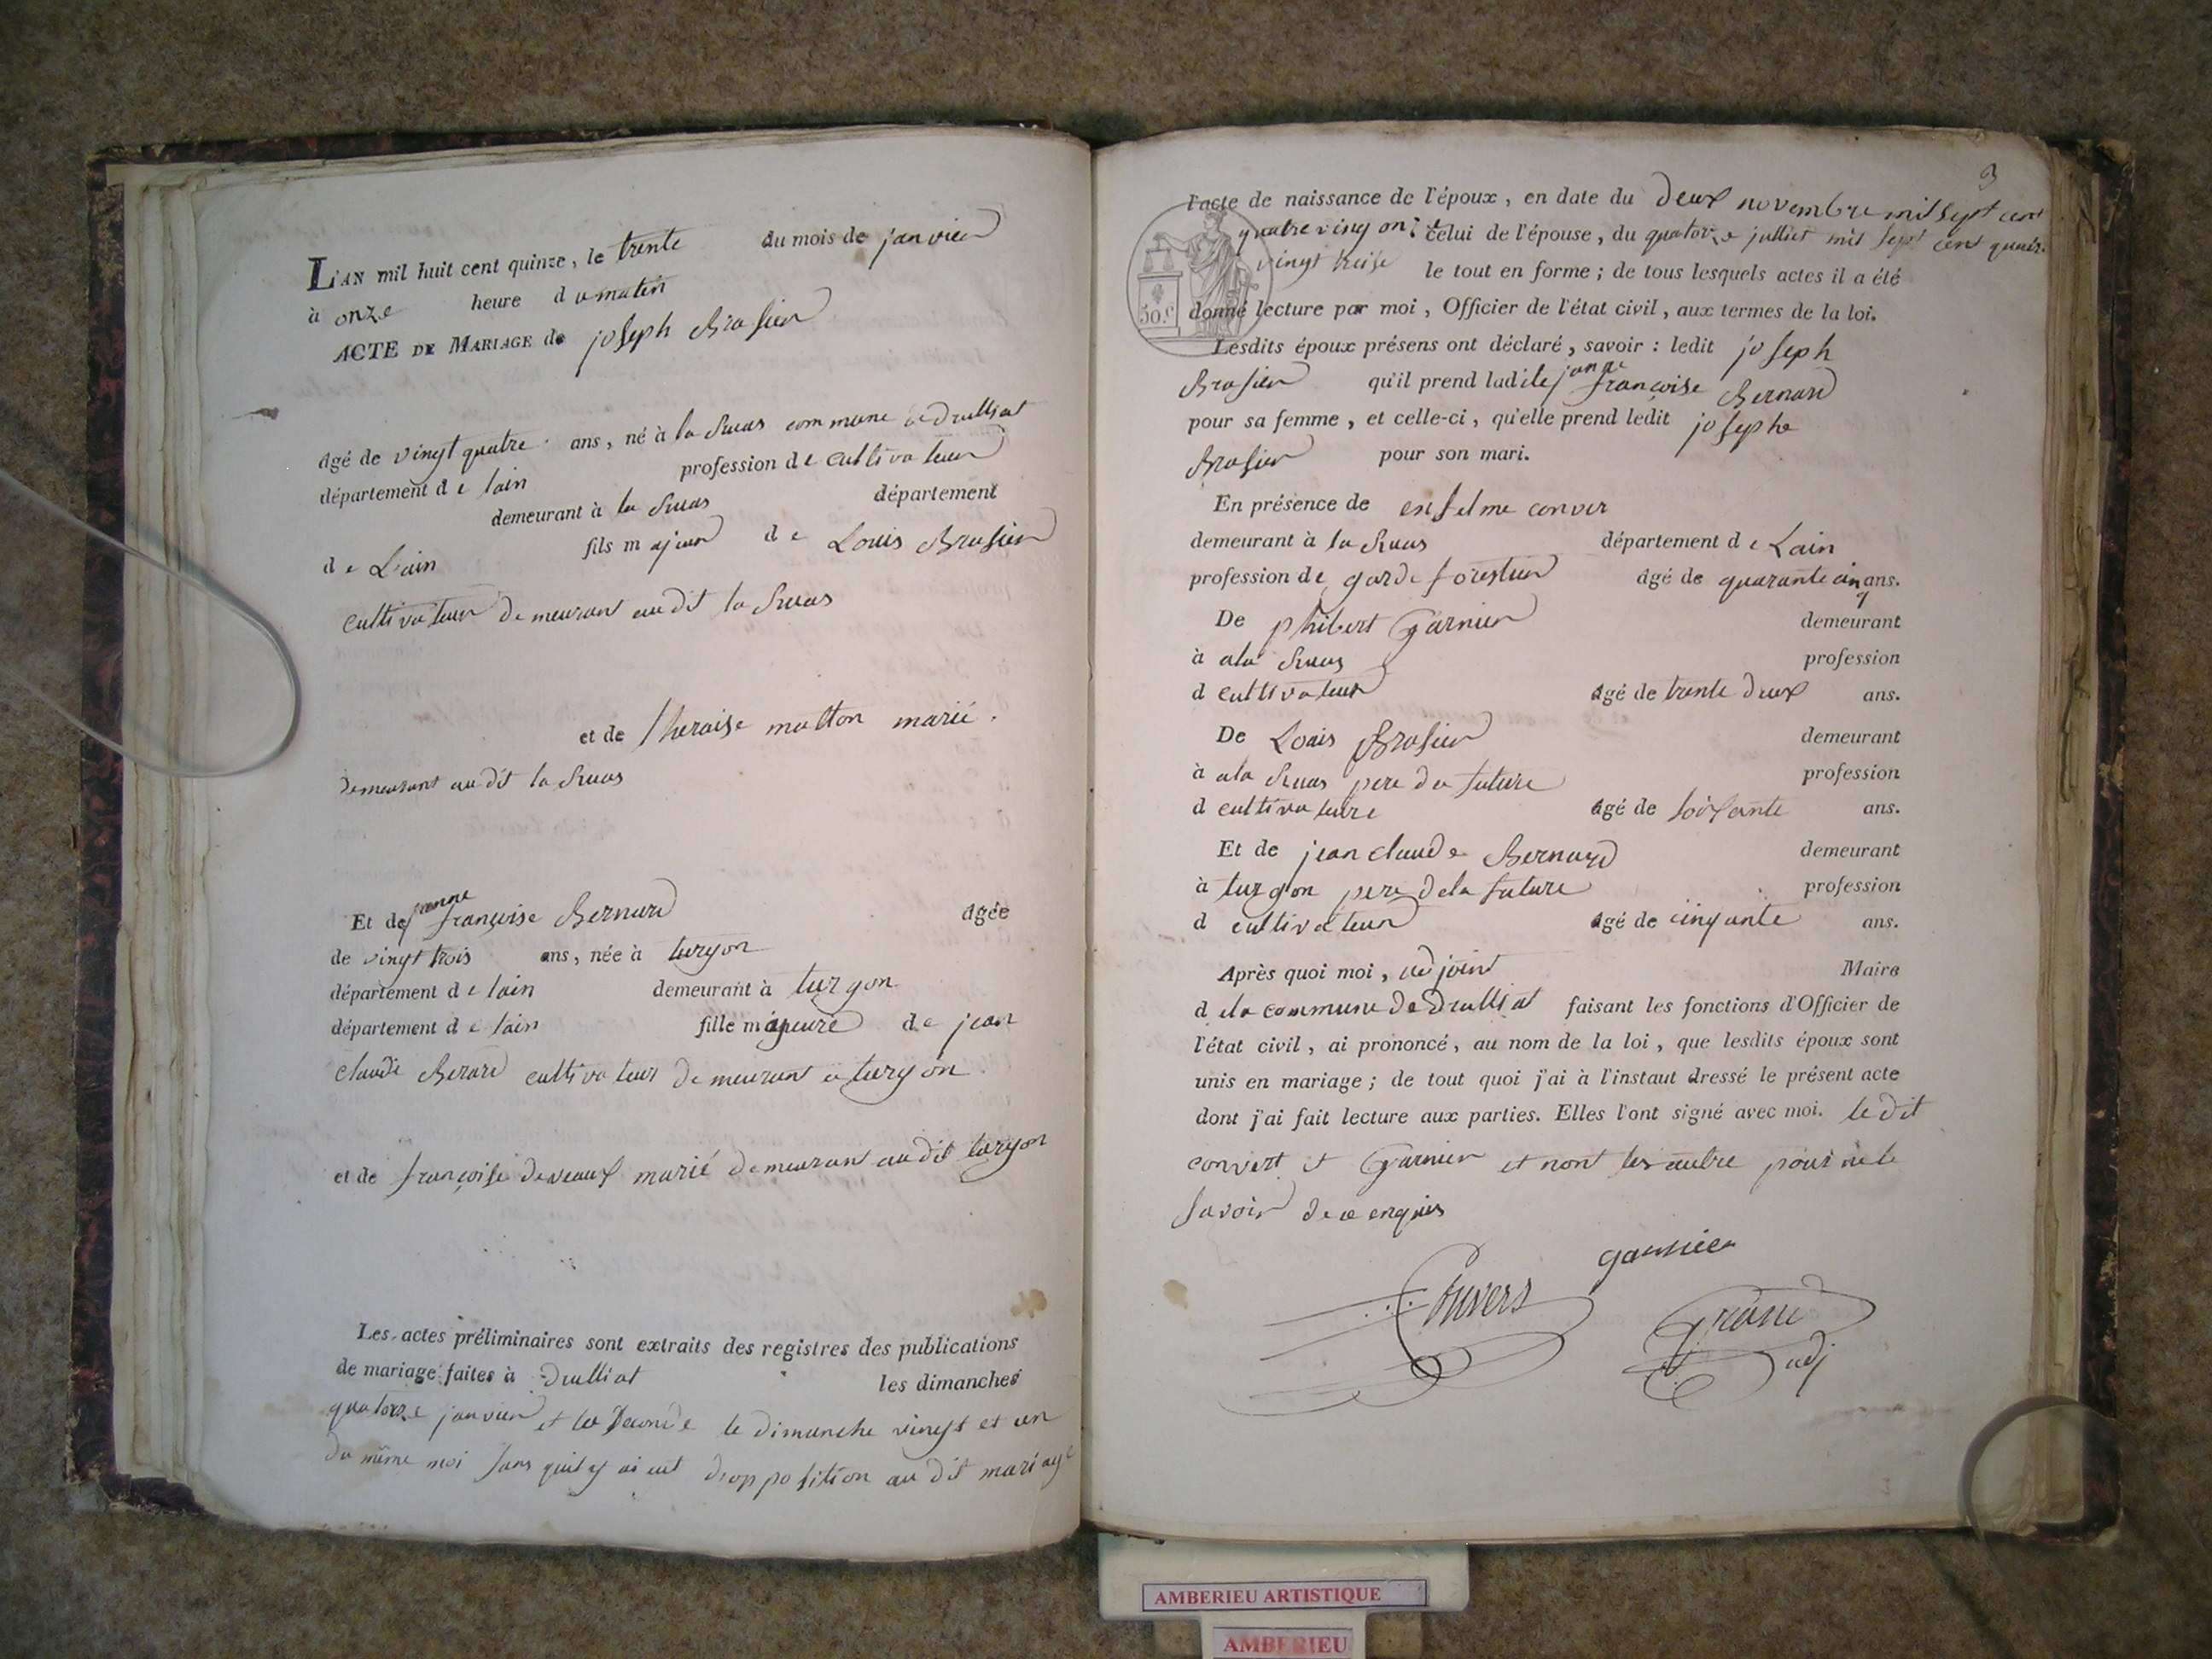 L'AN mil huit cent quinze, le trente du mois de janvier
à onze heure du matin
ACTE DE MARIAGE de joseph Brasier
âgé de vingt quatre ans, né à la Ruas commune de druilliat
département de lain profession de cultivateur
demeurant à la Ruas département
de Lain fils majeur de Louis Brasier
cultivateur demeurant audit la Ruas
et de theraise matton marié.
demeurant audit la Ruas
Et de janne françoise Bernard âgée
de vingt trois ans, née à turgon
département de lain demeurant à turgon
département de lain fille majeure de jean
claude Berard cultivateur demeurant a turgon
et de françoise deveaux marié demeurant audit turgon
Les actes préliminaires sont extraits des registres des publications
de mariage faites à Druilliat les dimanches
quatorze janvier et la seconde le dimanche vingt et un
du même moi sans quil y ai eut dopposition au dit mariage
3
l'acte de naissance de l'époux, en date du deux novembre mil sept cent
quatre ving onz celui de l'épouse, du quatorze julliet mil sept cent quatr
vingt treise le tout en forme ; de tous lesquels actes il a été
donné lecture par moi, Officier de l'état civil, aux termes de la loi.
50.c
Lesdits époux présens ont déclaré, savoir : ledit joseph
Brasier qu'il prend ladite janne françoise Bernard
pour sa femme, et celle-ci, qu'elle prend ledit josephe
Brasier pour son mari.
En présence de enselme conver
demeurant à la Ruas département de Lain
profession de garde forestier âgé de quarante cinq ans.
De philbert Garnier demeurant
à ala Ruas profession
d cultivateur âgé de trente deux ans.
De Louis Brasier demeurant
à ala Ruas pere du future profession
d cultivateure âgé de soixante ans.
Et de jean claude Bernard demeurant
à turgon pere dela future profession
d cultivateur âgé de cinquante ans.
Après quoi moi, adjoint Maire
d ela commune de Druilliat faisant les fonctions d'Officier de
l'état civil, ai prononcé, au nom de la loi, que lesdits époux sont
unis en mariage ; de tout quoi j'ai à l'instaut dressé le présent acte
dont j'ai fait lecture aux parties. Elles l'ont signé avec moi. le dit
convert et Garnier et nont les autre pour ne le
savoir de ce enquis
garnier
Convers
adj
AMBERIEU ARTISTIQUE
AMBERIEU